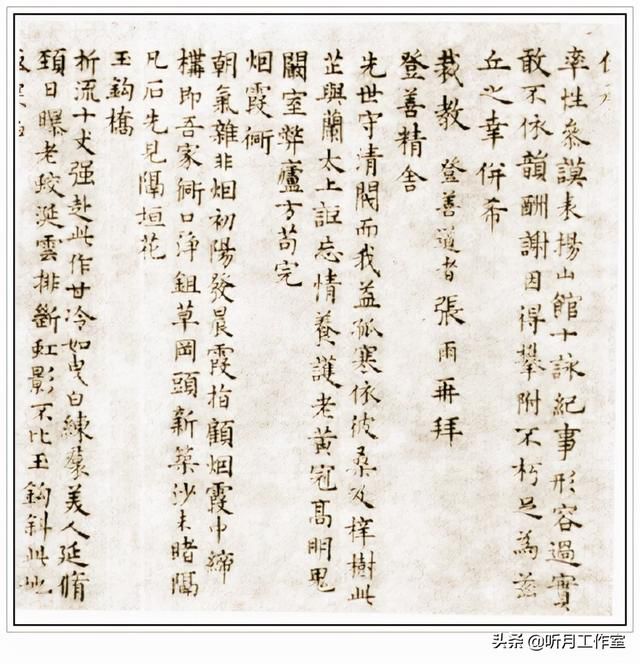 率性叅謨表揚山館十詠紀事形容過實
敢不依韻酬謝因得攀附不朽足為茲
丘之幸併希
裁教 登善道者張雨再拜
登善精舍
先世守清閥而我益孤寒依彼桑及梓樹此
芷與蘭太上詎忘情養護老黃冠高明鬼
闞室弊廬方苟完
烟霞衕
朝氣雜非烟初陽發晨霞指顧烟霞中締
構即吾家衕口淨鉏草岡頭新築沙未睹隔
凡石先見隔垣花
玉鈎橋
折流十丈强赴此作甘冷如曳白練裙美人延脩
頸日曝老蛟涎雲排斷虹影不比玉鈎斜此地
头条 @听月工作室